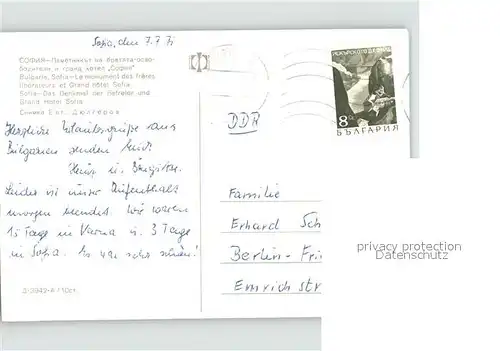 Sofia, den 7.7.71
СОФИЯ – Паметникът на братята-осво-
бодители и гранд хотел „София"
Bulgarie, Sofia – Le monument des frères
libérateurs et Grand Hôtel Sofia
Sofia – Das Denkmal der Befreier und
Grand Hotel Sofia
Снимка Евт. Дюлгеров
Herzliche Urlaubsgrüße aus
Bulgarien senden Euch
Heinz u. Brigitte.
Leider ist unser Aufenthalt
morgen beendet. Wir waren
15 Tage in Varna u. 3 Tage
in Sofia. Es war sehr schön!
Д-3942-А / 10ст.
8 ст
БЪЛГАРИЯ
DDR
Familie
Erhard Sch
Berlin-Fri
Emrichstr
privacy protection
Datenschutz